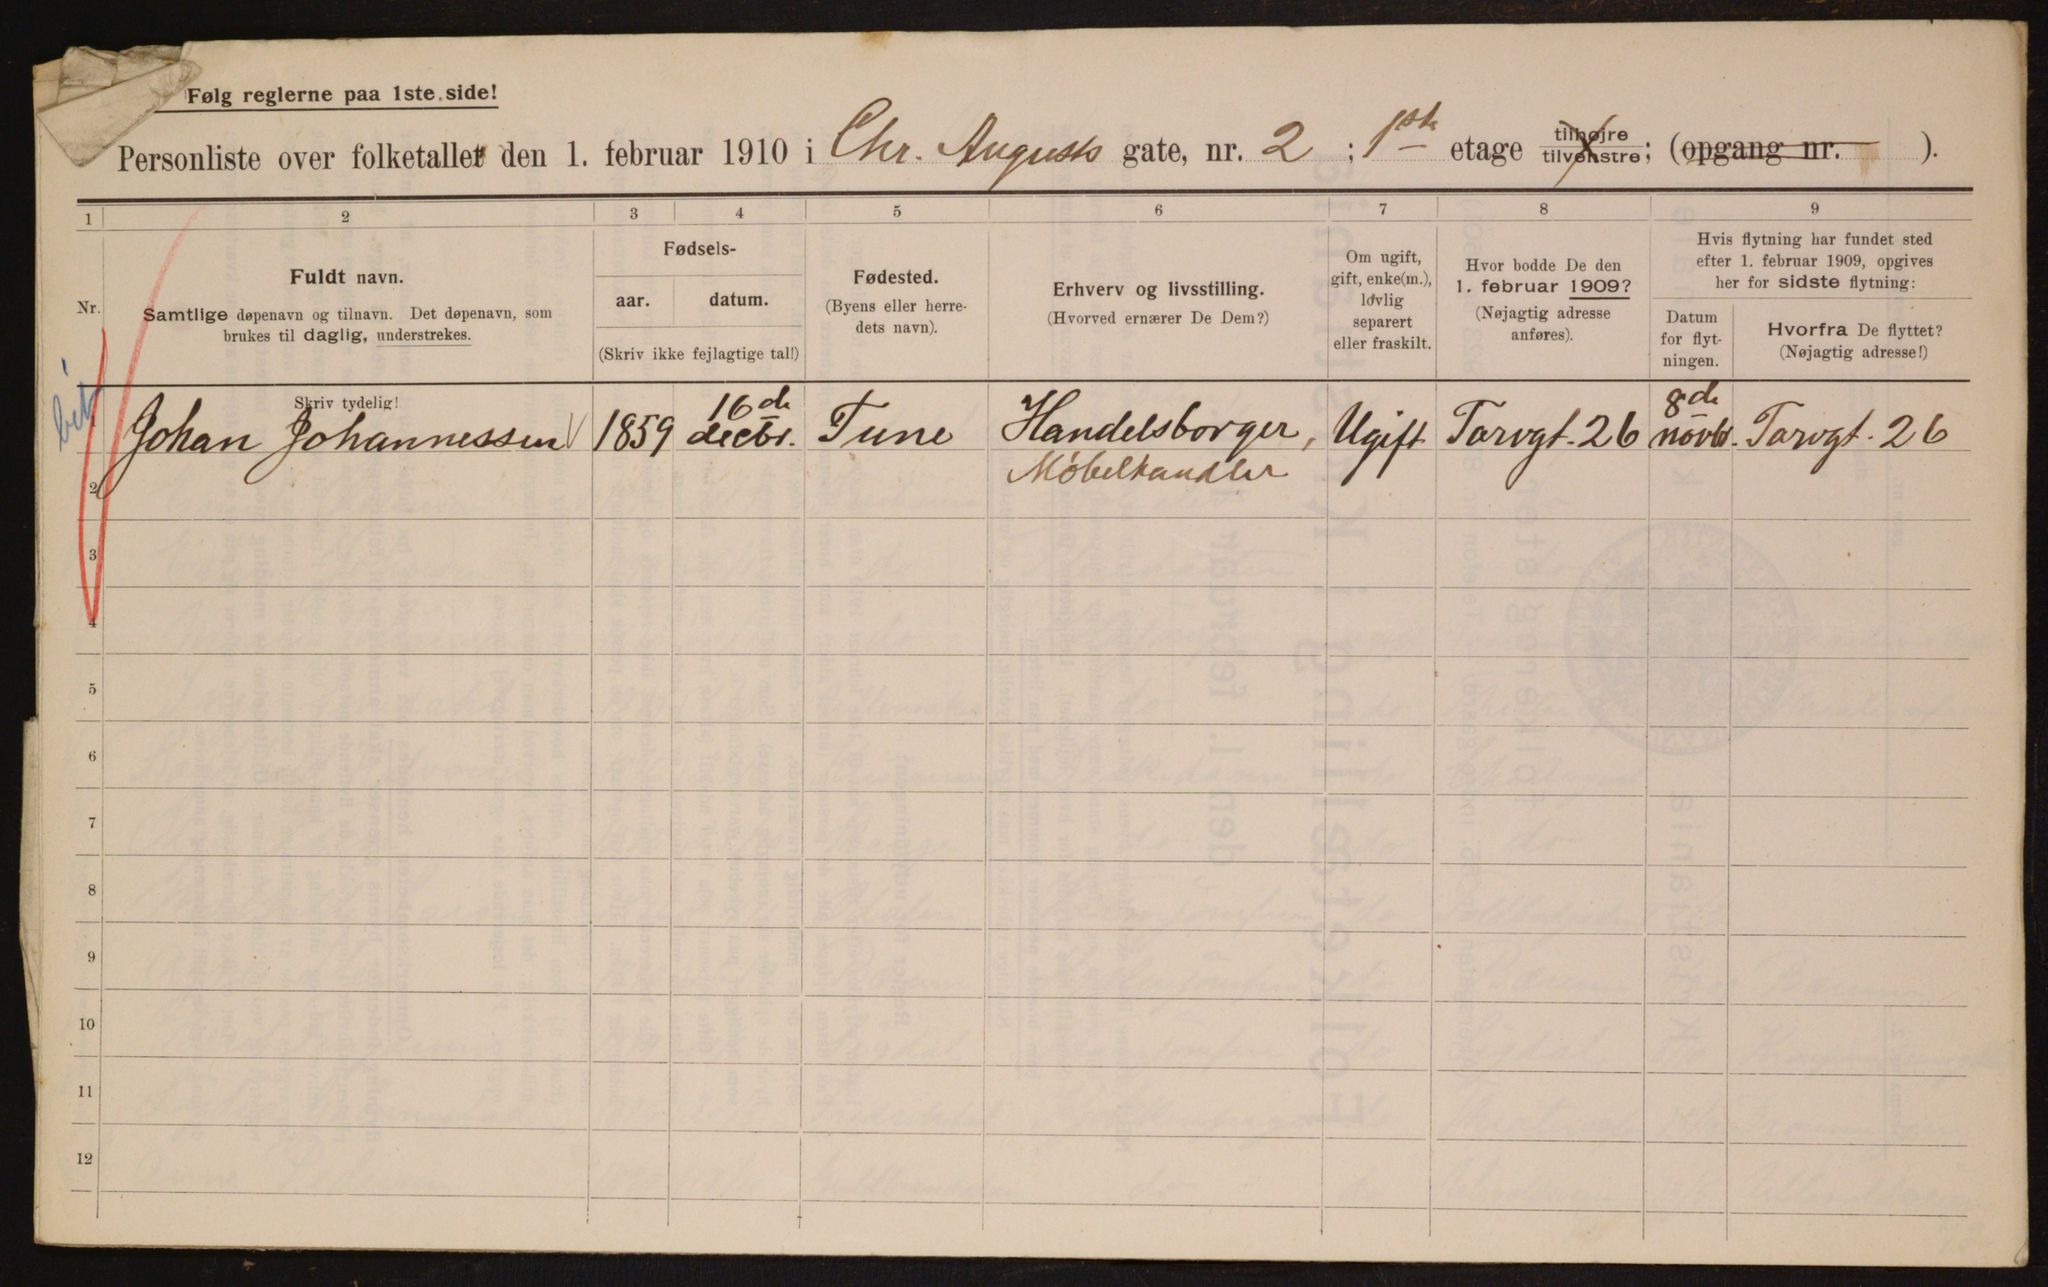 Følg reglerne paa 1ste side!
Personliste over folketallet den 1. februar 1910 i Chr. Augusts gate, nr. 2 ; 1ste etage tilhøjre tilvenstre; (opgang nr. ).
1 2 3 4 5 6 7 8 9
Nr.
Fuldt navn.
Samtlige døpenavn og tilnavn. Det døpenavn, som
brukes til daglig, understrekes.
Fødsels-
aar. datum.
(Skriv ikke fejlagtige tal!)
Fødested.
(Byens eller herre-
dets navn).
Erhverv og livsstilling.
(Hvorved ernærer De Dem?)
Om ugift,
gift, enke(m.),
lovlig
separert
eller fraskilt.
Hvor bodde De den
1. februar 1909?
(Nøjagtig adresse
anføres).
Hvis flytning har fundet sted
efter 1. februar 1909, opgives
her for sidste flytning:
Datum
for flyt-
ningen.
Hvorfra De flyttet?
(Nøjagtig adresse!)
Skriv tydelig!
1 Johan Johannessen 1859 16de decbr. Tune Handelsborger, Ugift Torvgt. 26 8de novbr. Torvgt. 26
Møbelhandler
2
3
4
5
6
7
8
9
10
11
12